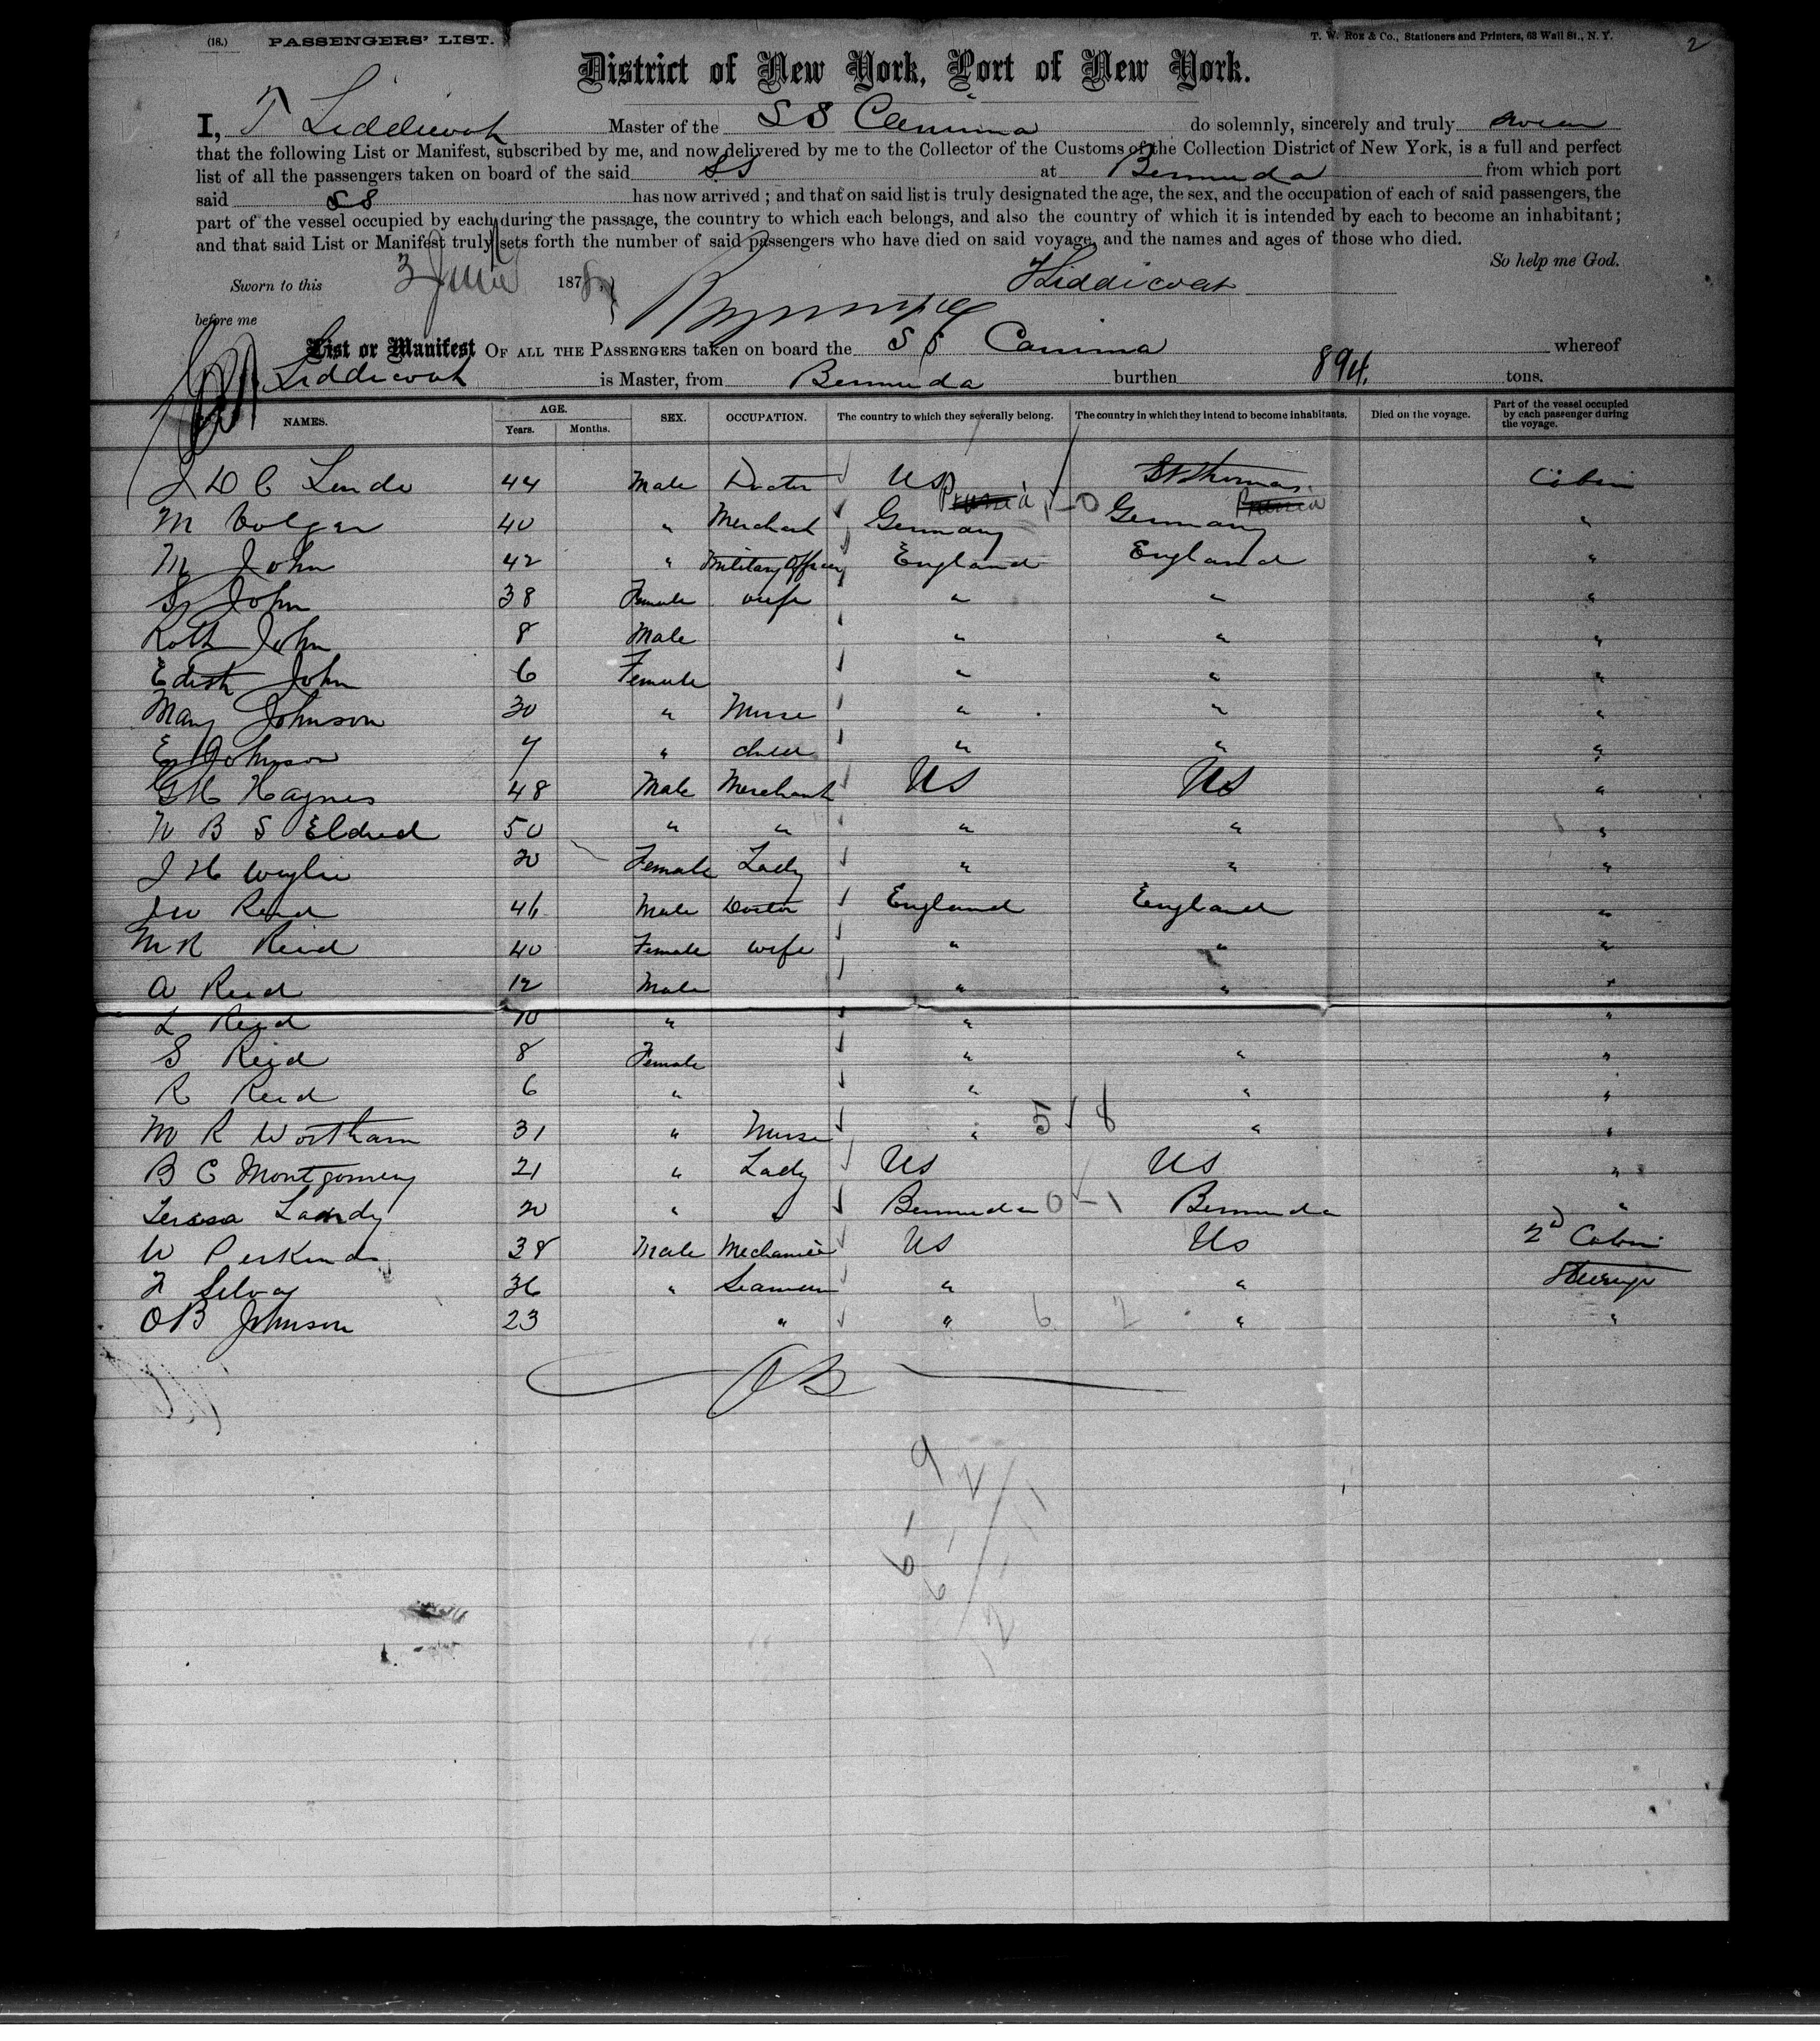 (18.) PASSENGERS' LIST. T. W. Roe & Co., Stationers and Printers, 63 Wall St., N. Y. 2
District of New York, Port of New York.
I, T Liddicoat Master of the S S Canima do solemnly, sincerely and truly swear
that the following List or Manifest, subscribed by me, and now delivered by me to the Collector of the Customs of the Collection District of New York, is a full and perfect
list of all the passengers taken on board of the said SS at Bermuda from which port
said SS has now arrived; and that on said list is truly designated the age, the sex, and the occupation of each of said passengers, the
part of the vessel occupied by each during the passage, the country to which each belongs, and also the country of which it is intended by each to become an inhabitant;
and that said List or Manifest truly sets forth the number of said passengers who have died on said voyage, and the names and ages of those who died.
So help me God.
Sworn to this 3 June 1878 Liddicoat
before me
List or Manifest OF ALL THE PASSENGERS taken on board the S S Canima whereof
Liddicoat is Master, from Bermuda burthen 894 tons.
NAMES. AGE. Years. Months. SEX. OCCUPATION. The country to which they severally belong. The country in which they intend to become inhabitants. Died on the voyage. Part of the vessel occupied by each passenger during the voyage.
J D C 44 Male Doctor US St Thomas Cabin
M Volger 40 " Merchant Germany Prussia 1-0 Germany Prussia "
M John 42 " Military Officer England England "
S John 38 Female wife " " "
Roth John 8 Male " " "
Edith John 6 Female " " "
Mary Johnson 30 " Nurse " " "
E Johnson 7 " child " " "
G H Haynes 48 Male Merchant US US "
W B S Eldred 50 " " " " "
J H Wylie 20 Female Lady " " "
J W Reid 46 Male Doctor England England "
M R Reid 40 Female wife " " "
A Reid 12 Male " " "
L Reid 10 " " "
S Reid 8 Female " " "
R Reid 6 " " " "
M R Wortham 31 " Nurse " 5 / 8 " "
B C Montgomery 21 " Lady US US "
Teresa Landy 20 " " Bermuda 0-1 Bermuda "
W Perkins 38 Male Mechanic US US 2D Cabin
F Silva 36 " Seaman " " Steerage
O B Johnson 23 " " 6 2 " "